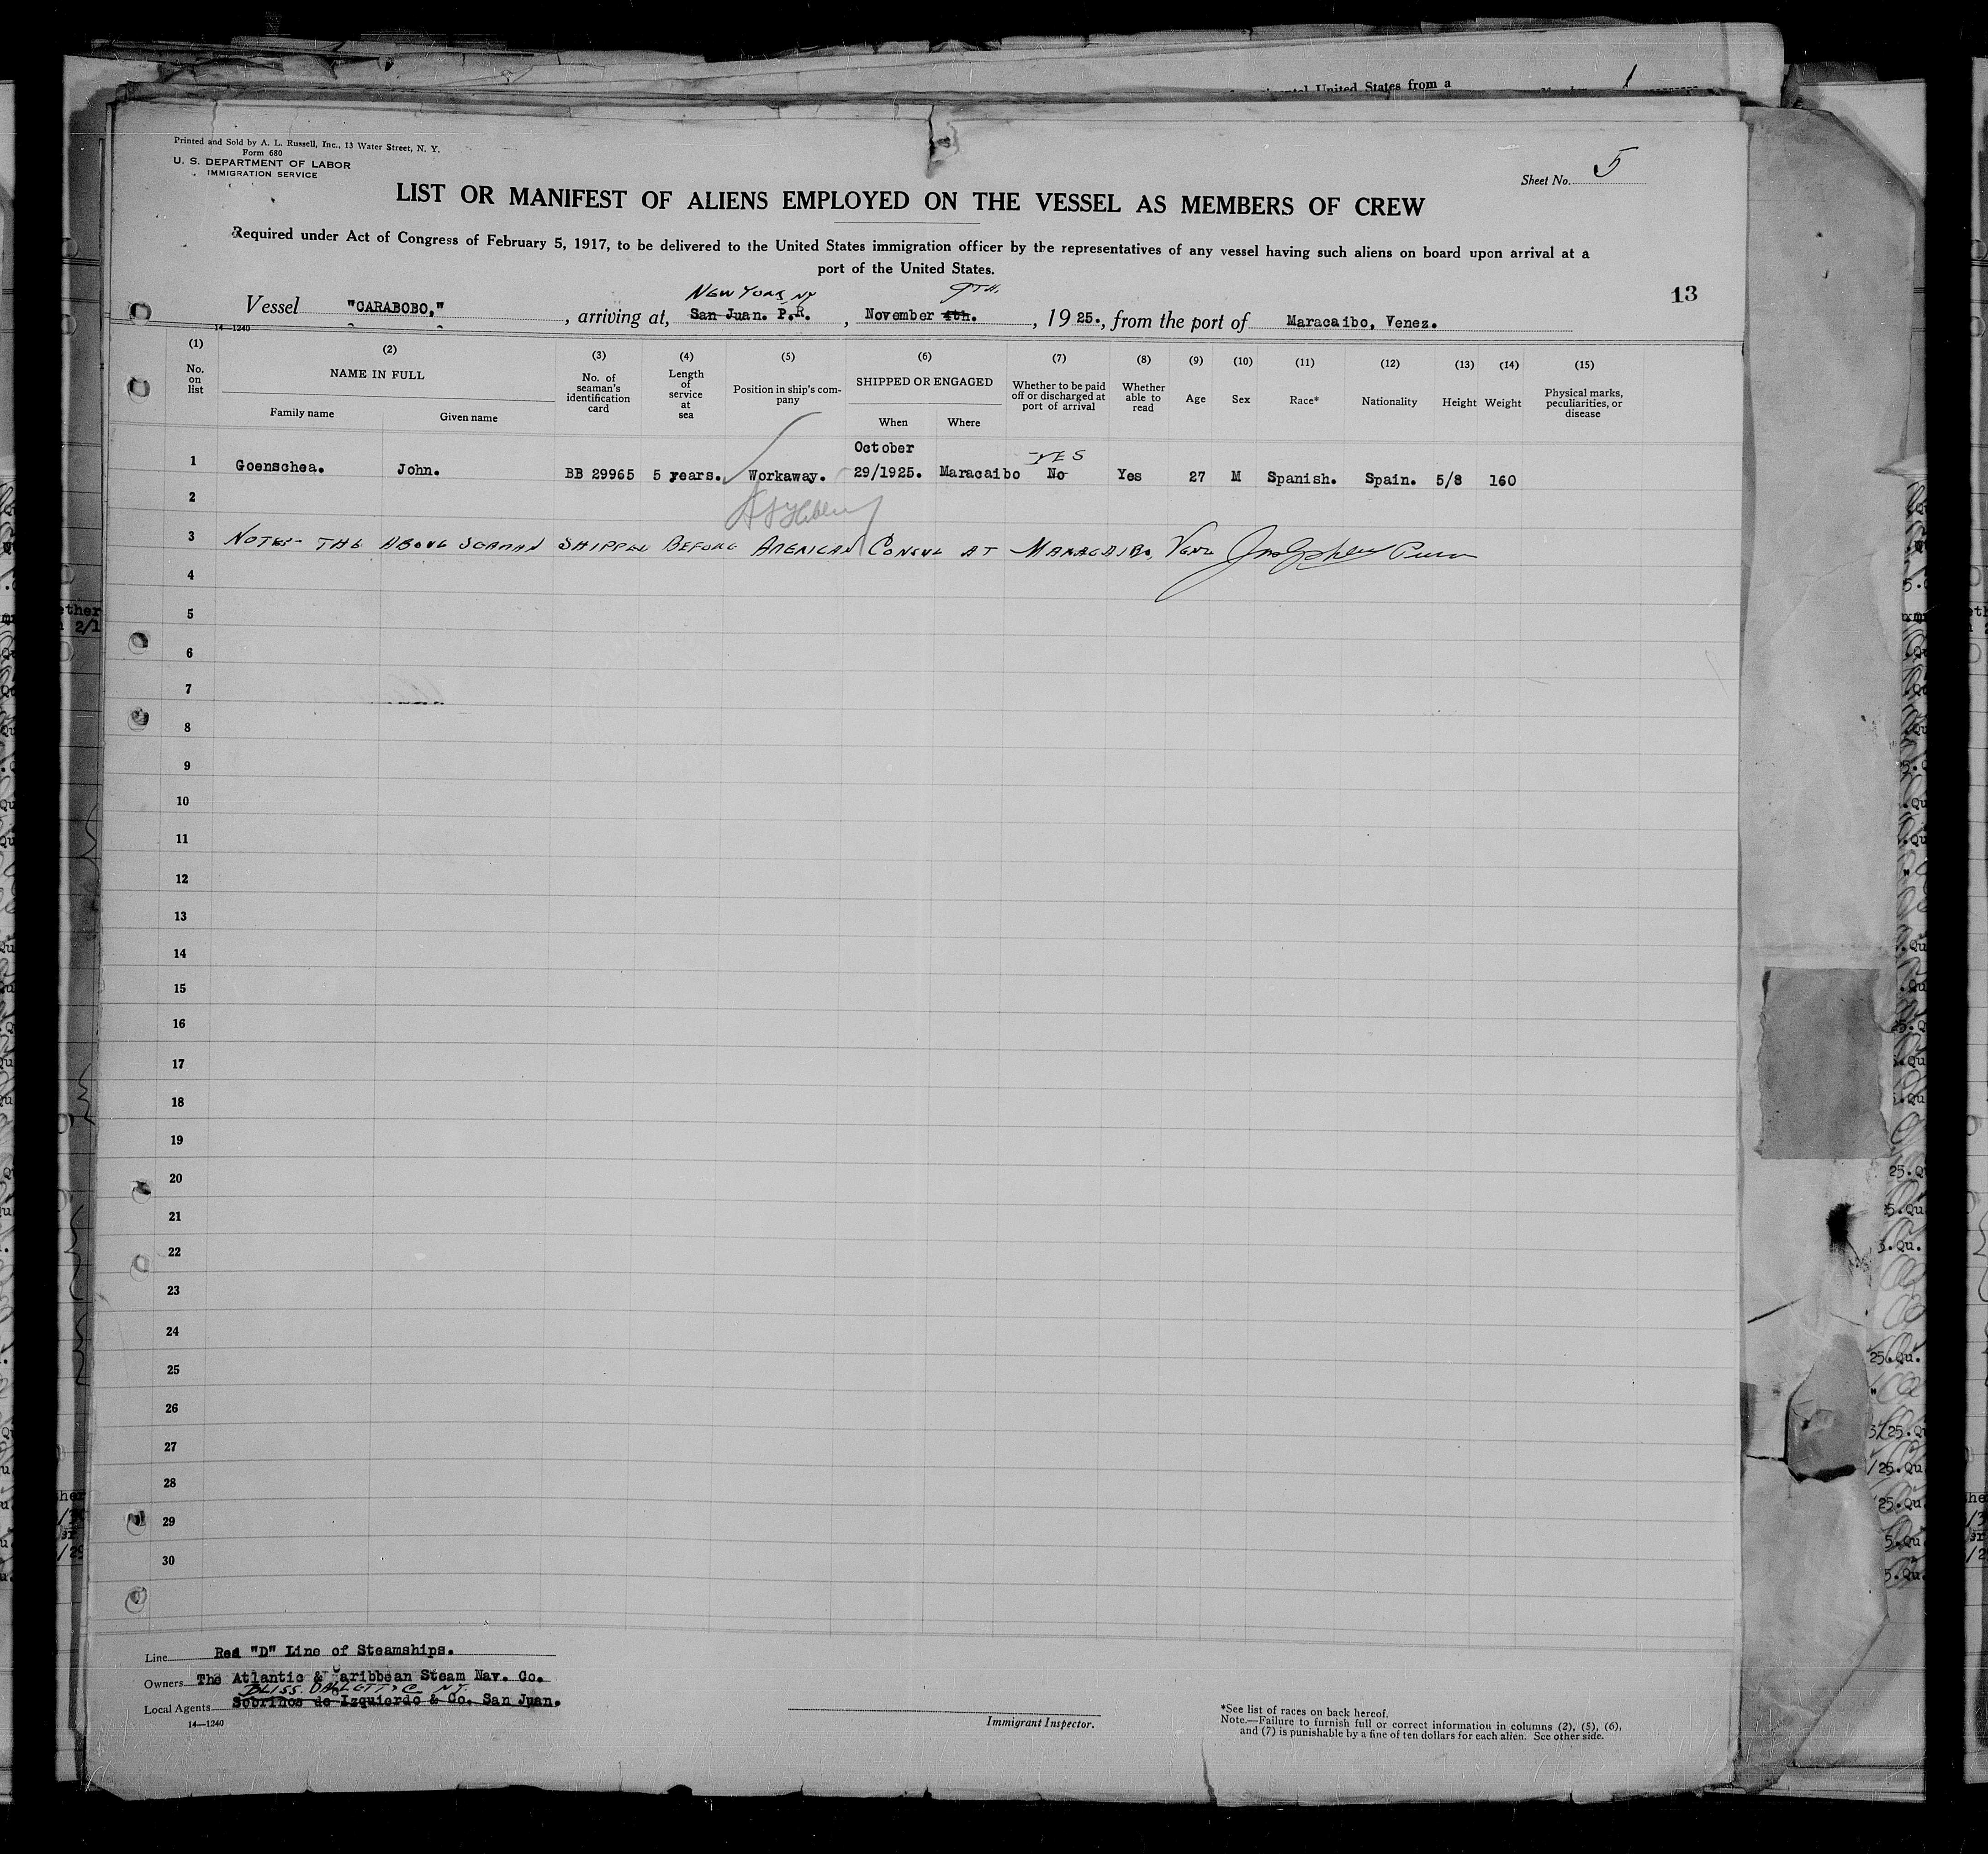 United States from a
1
Printed and Sold by A. L. Russell, Inc., 13 Water Street, N. Y.
Form 680
U. S. DEPARTMENT OF LABOR
IMMIGRATION SERVICE
Sheet No. 5
LIST OR MANIFEST OF ALIENS EMPLOYED ON THE VESSEL AS MEMBERS OF CREW
Required under Act of Congress of February 5, 1917, to be delivered to the United States immigration officer by the representatives of any vessel having such aliens on board upon arrival at a
port of the United States.
NEW YORK, NY 9TH.
13
Vessel "CARABOBO," , arriving at, San Juan. P.R. , November 4th. , 19 25., from the port of Maracaibo, Venez.
14—1240
(1) (2) (3) (4) (5) (6) (7) (8) (9) (10) (11) (12) (13) (14) (15)
No. on list
NAME IN FULL
Family name
Given name
No. of seaman's identification card
Length of service at sea
Position in ship's company
SHIPPED OR ENGAGED
When
Where
Whether to be paid off or discharged at port of arrival
Whether able to read
Age
Sex
Race*
Nationality
Height
Weight
Physical marks, peculiarities, or disease
October
YES
1 Goenschea. John. BB 29965 5 years. Workaway. 29/1925. Maracaibo No Yes 27 M Spanish. Spain. 5/8 160
2
3 NOTE- THE ABOVE SEAMAN SHIPPED BEFORE AMERICAN CONSUL AT MARACAIBO, VENZ
4
5
6
7
8
9
10
11
12
13
14
15
16
17
18
19
20
21
22
23
24
25
26
27
28
29
30
Line Red "D" Line of Steamships.
Owners The Atlantic & Caribbean Steam Nav. Co.
BLISS. DALLETT & Co NY.
Local Agents Sobrinos de Izquierdo & Co. San Juan.
14—1240
Immigrant Inspector.
*See list of races on back hereof.
Note.—Failure to furnish full or correct information in columns (2), (5), (6),
and (7) is punishable by a fine of ten dollars for each alien. See other side.